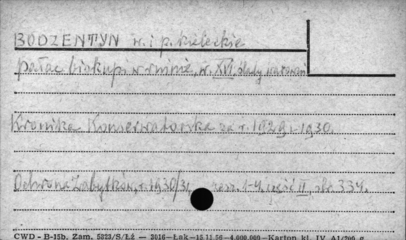 BODZENTYN w. i p. kieleckie
pałac biskup. w ruinie, w. XVI, ślady
Kronika Konserwatorska za r. 1929 i 1930.
Ochrona Zabytków, r. 1930/31, zesz. 1-4, część II, str. 334.
CWD - B-15b, Zam. 5323/S/Łż — 2016 — Łak — 15.11.56 — 4.000.000 — Karton. kl. IV